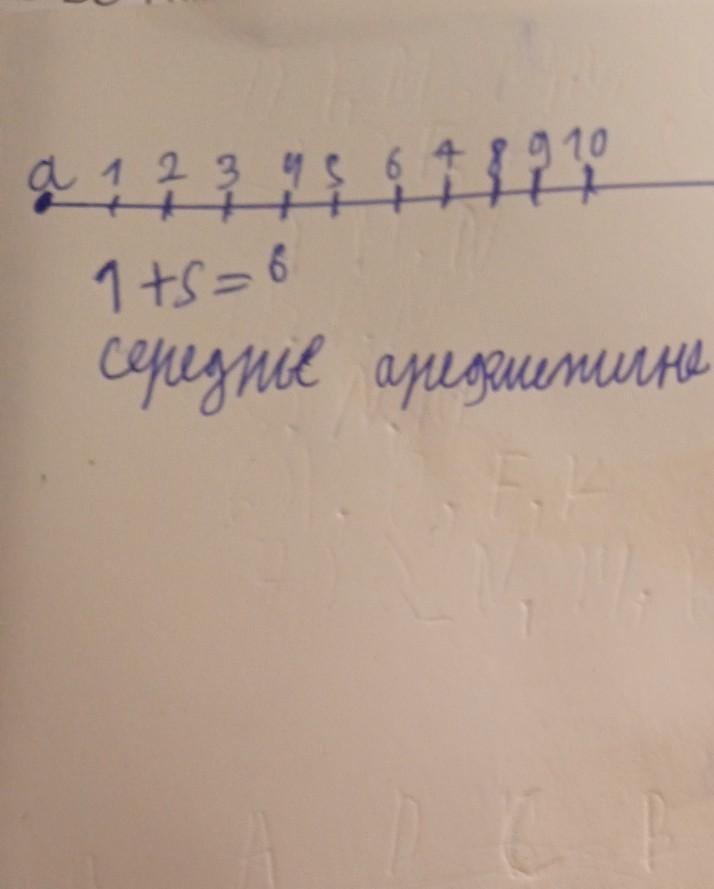 a 1 2 3 4 5 6 7 8 9 10
1+5=6
середнє аредяметичне